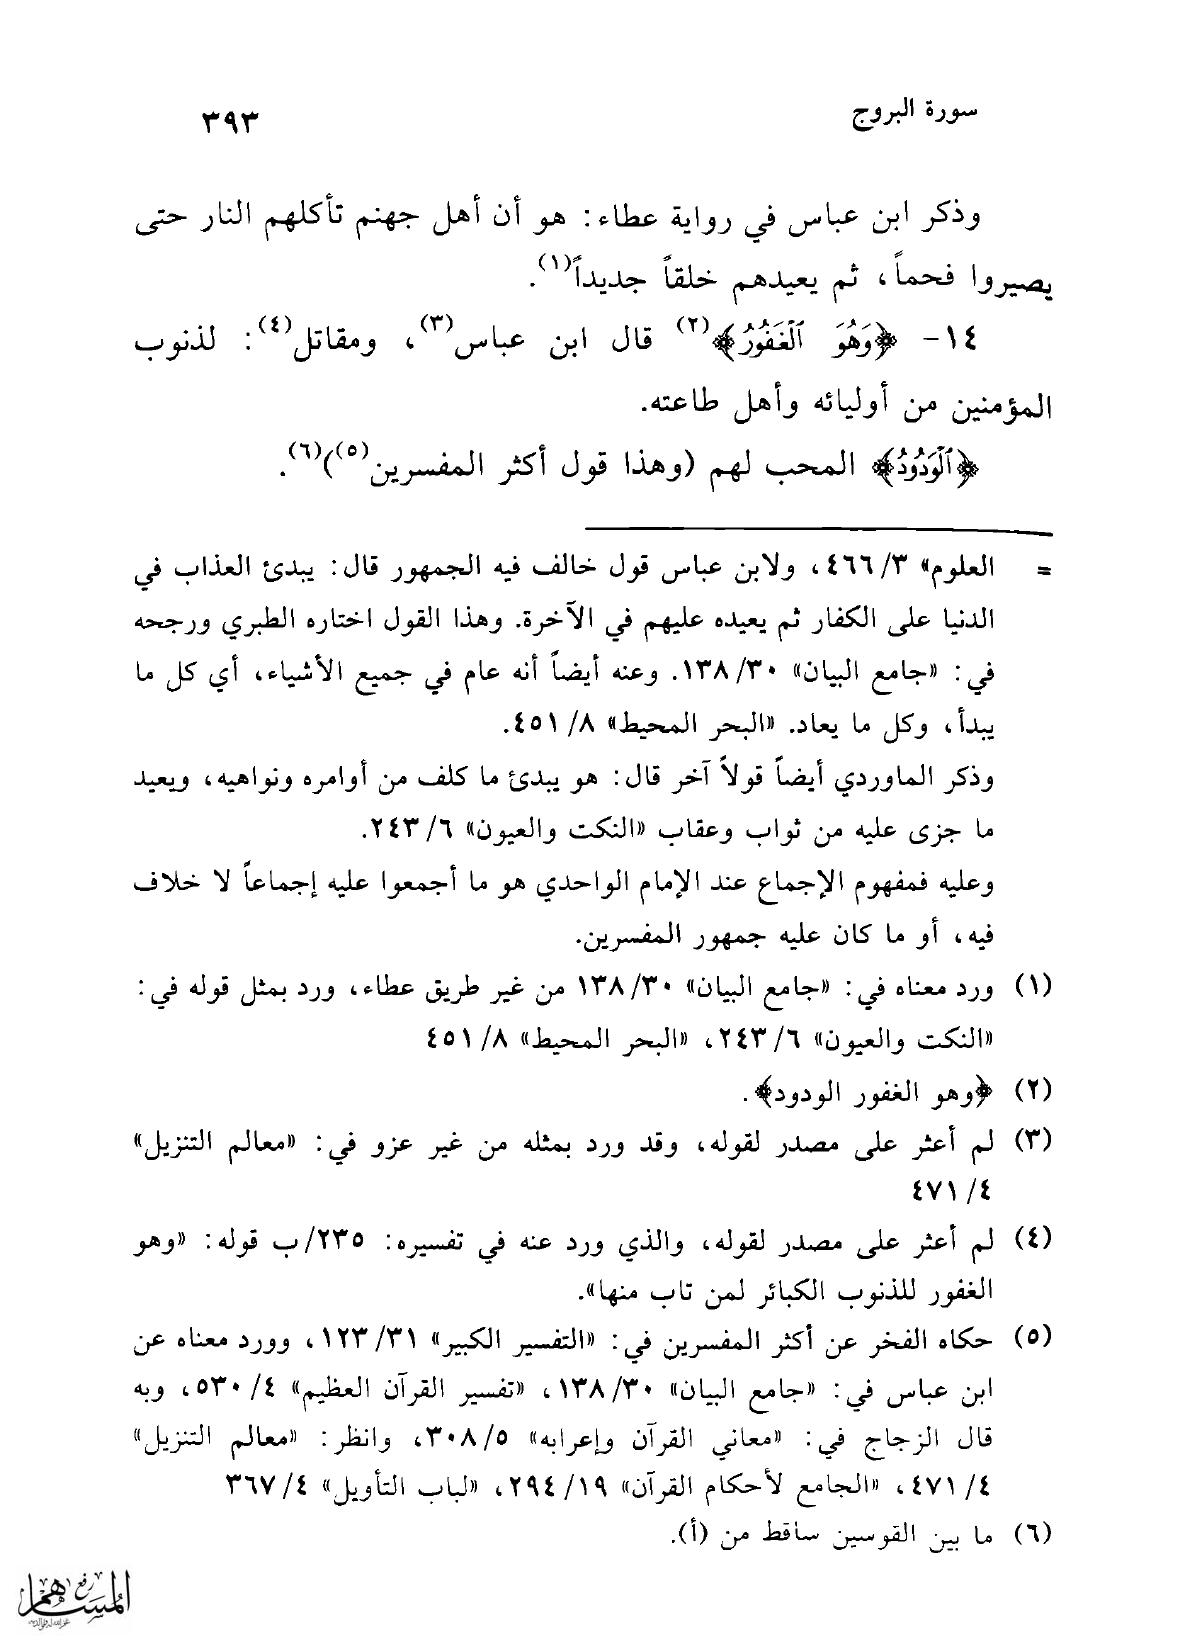 سورة البروج
٣٩٣
وذكر ابن عباس في رواية عطاء: هو أن أهل جهنم تأكلهم النار حتى
يصيروا فحماً، ثم يعيدهم خلقاً جديداً(١).
١٤- ﴿وَهُوَ ٱلْغَفُورُ﴾(٢) قال ابن عباس(٣)، ومقاتل(٤): لذنوب
المؤمنين من أوليائه وأهل طاعته.
﴿ٱلْوَدُودُ﴾ المحب لهم (وهذا قول أكثر المفسرين(٥))(٦).
= العلوم» ٣/ ٤٦٦، ولابن عباس قول خالف فيه الجمهور قال: يبدئ العذاب في
الدنيا على الكفار ثم يعيده عليهم في الآخرة. وهذا القول اختاره الطبري ورجحه
في: «جامع البيان» ٣٠/ ١٣٨. وعنه أيضاً أنه عام في جميع الأشياء، أي كل ما
يبدأ، وكل ما يعاد. «البحر المحيط» ٨/ ٤٥١.
وذكر الماوردي أيضاً قولاً آخر قال: هو يبدئ ما كلف من أوامره ونواهيه، ويعيد
ما جزى عليه من ثواب وعقاب «النكت والعيون» ٦/ ٢٤٣.
وعليه فمفهوم الإجماع عند الإمام الواحدي هو ما أجمعوا عليه إجماعاً لا خلاف
فيه، أو ما كان عليه جمهور المفسرين.
(١) ورد معناه في: «جامع البيان» ٣٠/ ١٣٨ من غير طريق عطاء، ورد بمثل قوله في:
«النكت والعيون» ٦/ ٢٤٣، «البحر المحيط» ٨/ ٤٥١
(٢) ﴿وهو الغفور الودود﴾.
(٣) لم أعثر على مصدر لقوله، وقد ورد بمثله من غير عزو في: «معالم التنزيل»
٤/ ٤٧١
(٤) لم أعثر على مصدر لقوله، والذي ورد عنه في تفسيره: ٢٣٥/ ب قوله: «وهو
الغفور للذنوب الكبائر لمن تاب منها».
(٥) حكاه الفخر عن أكثر المفسرين في: «التفسير الكبير» ٣١/ ١٢٣، وورد معناه عن
ابن عباس في: «جامع البيان» ٣٠/ ١٣٨، «تفسير القرآن العظيم» ٤/ ٥٣٠، وبه
قال الزجاج في: «معاني القرآن وإعرابه» ٥/ ٣٠٨، وانظر: «معالم التنزيل»
٤/ ٤٧١، «الجامع لأحكام القرآن» ١٩/ ٢٩٤، «لباب التأويل» ٤/ ٣٦٧
(٦) ما بين القوسين ساقط من (أ).